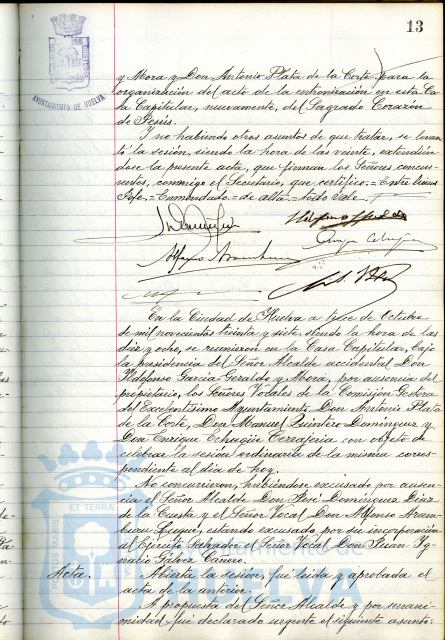 13
AYUNTAMIENTO DE HUELVA
y Mora y Don Antonio Plata de la Corte para la
organización del acto de la entronización en esta Ca
sa Capitular, nuevamente, del Sagrado Corazón
de Jesús.
Y no habiendo otros asuntos de que tratar, se levan
tó la sesión, siendo la hora de las veinte, extendién
dose la presente acta, que firman los Señores concur-
rentes, conmigo el Secretario, que certifico;=Entre líneas
Jefe.=Enmendado=de alta.=Todo vale.
En la Ciudad de Huelva a doce de Octubre
de mil novecientos treinta y siete, siendo la hora de las
diez y ocho, se reunieron en la Casa Capitular, bajo
la presidencia del Señor Alcalde accidental Don
Ildefonso García Geraldo y Mora, por ausencia del
propietario, los Señores Vocales de la Comisión Gestora
del Excelentísimo Ayuntamiento Don Antonio Plata
de la Corte, Don Manuel Quintero Domínguez y
Don Enrique Echagüe Terraferia con objeto de
celebrar la sesión ordinaria de la misma corres-
pondiente al día de hoy.
No concurrieron, habiéndose excusado por ausen-
cia el Señor Alcalde Don José Domínguez Díez
de la Cuesta y el Señor Vocal Don Alfonso Aram
buru Luque, estando excusado por su incorporación
al Ejército Salvador el Señor Vocal Don Juan Ig-
nacio Gálvez Cañero.
Acta. Abierta la sesión, fue leída y aprobada el
acta de la anterior.
A propuesta del Señor Alcalde y por unani-
midad fue declarado urgente el siguiente asunto:
PORTUS MARIS ET TERRAE
HUELVA